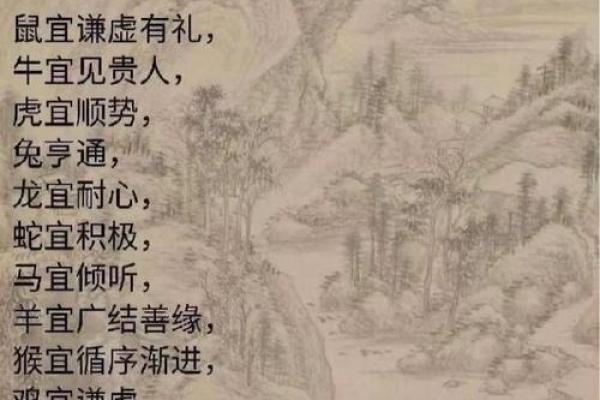 鼠宜谦虚有礼，
牛宜见贵人，
虎宜顺势，
兔亨通，
龙宜耐心，
蛇宜积极，
马宜倾听，
羊宜广结善缘，
猴宜循序渐进，
鸡宜谦虚